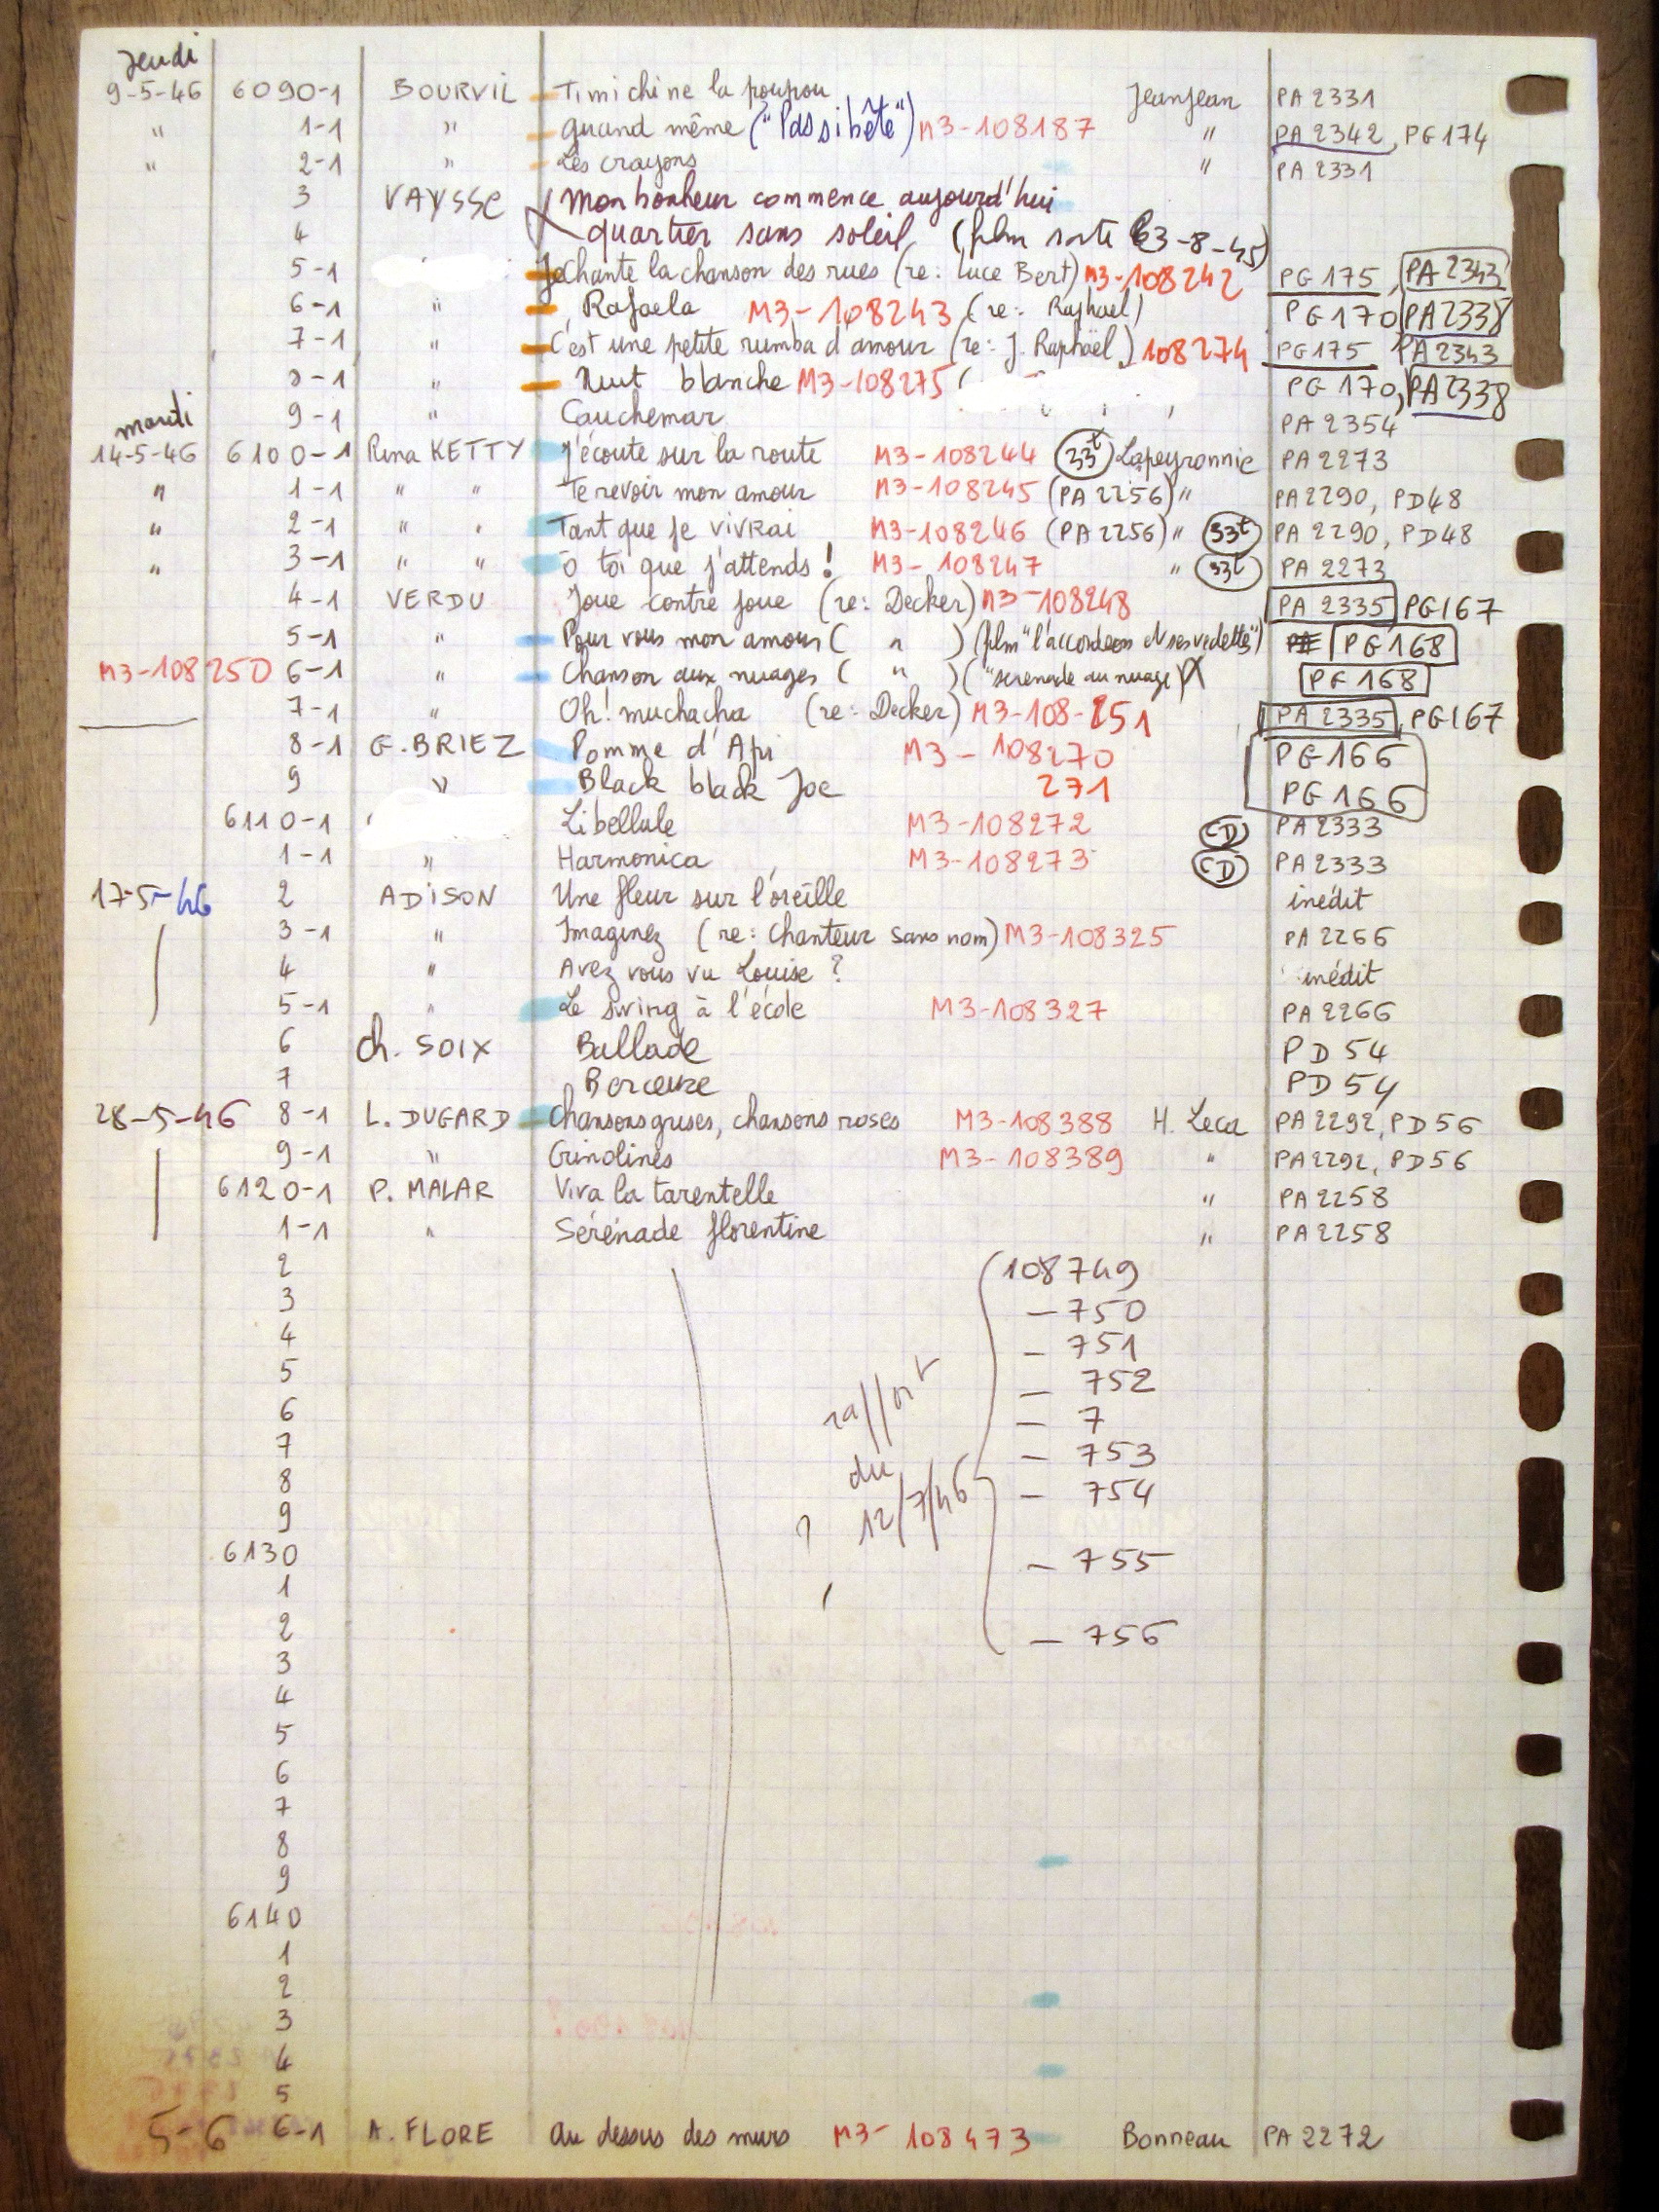 Jeudi
9-5-46 6090-1 BOURVIL Timichine la poupou Jeanjean PA 2331
" 1-1 " quand même ("Pas si bête") M3-108187 " PA 2342, PG 174
" 2-1 " Les crayons " PA 2331
3 VAYSSE Mon bonheur commence aujourd'hui
4 quartier sans soleil (film sorti 3-8-45)
5-1 Je chante la chanson des rues (re: Luce Bert) M3-108242 PG 175, PA 2343
6-1 " Rafaela M3-108243 (re: Raphaël) PG 170 PA 2338
7-1 " C'est une petite rumba d'amour (re: J. Raphaël) 108274 PG 175 PA 2343
8-1 " Nuit blanche M3-108275 ( PG 170, PA 2338
9-1 " Cauchemar PA 2354
mardi
14-5-46 6100-1 Rina KETTY J'écoute sur la route M3-108244 33t Lapeyronnie PA 2273
" 1-1 " " Te revoir mon amour M3-108245 (PA 2256) " PA 2290, PD 48
" 2-1 " " Tant que je vivrai M3-108246 (PA 2256) " 33t PA 2290, PD 48
" 3-1 " " ô toi que j'attends ! M3-108247 " 33t PA 2273
4-1 VERDU Joue contre joue (re: Decker) M3-108248 PA 2335 PG 167
5-1 " Pour vous mon amour ( " ) (film "l'accordéon et ses vedettes") PG 168
M3-108250 6-1 " Chanson aux nuages ( " ) ("serenade au nuage") PG 168
7-1 " Oh! muchacha (re: Decker) M3-108-251 PA 2335, PG 167
8-1 G. BRIEZ Pomme d'Api M3-108270 PG 166
9 " Black black Joe 271 PG 166
6110-1 Libellule M3-108272 CD PA 2333
1-1 " Harmonica M3-108273 CD PA 2333
17-5-46 2 ADISON Une fleur sur l'oreille inédit
3-1 " Imaginez (re: Chanteur sans nom) M3-108325 PA 2266
4 " Avez vous vu Louise ? inédit
5-1 " Le swing à l'école M3-108327 PA 2266
6 Ch. SOIX Ballade PD 54
7 Berceuse PD 54
28-5-46 8-1 L. DUGARD Chansons grises, chansons roses M3-108388 H. Leca PA 2292, PD 56
9-1 " Crinolines M3-108389 " PA 2292, PD 56
6120-1 P. MALAR Viva la tarentelle " PA 2258
1-1 " Sérénade florentine " PA 2258
2 108749
3 - 750
4 - 751
5 - 752
6 - 7
7 - 753
8 du - 754
9 ? 12/7/46
6130 - 755
1
2 - 756
3
4
5
6
7
8
9
6140
1
2
3
4
5
5-6 6-1 A. FLORE Au dessus des murs M3-108473 Bonneau PA 2272